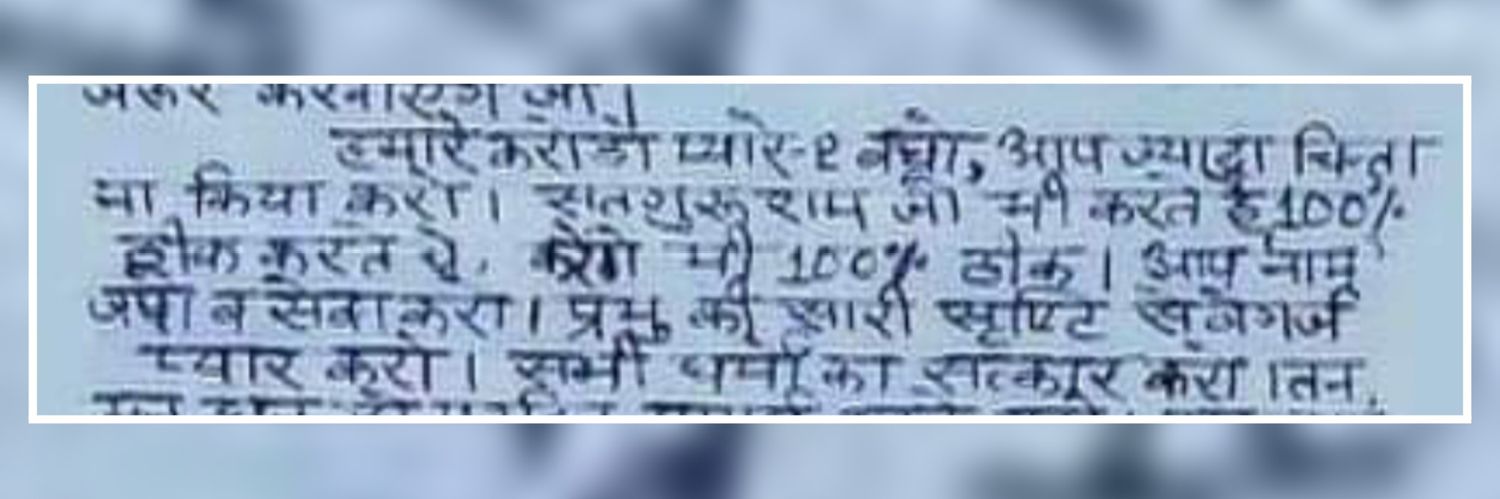 जरूर करवाएंगे जी।
हमारे करोडो प्यारे-2 बच्चो, आप ज्यादा चिन्ता
ना किया करो। सतगुरू राम जी भी करते है 100%
ठीक करते थे, करेंगे भी 100% ठीक। आप नाम
जपो व सेवा करो। प्रभु की सारी सृष्टि से बेगर्ज
प्यार करो। सभी धर्मो का सत्कार करो। तन,